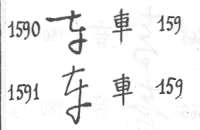 1590 车 車 159
1591 车 車 159